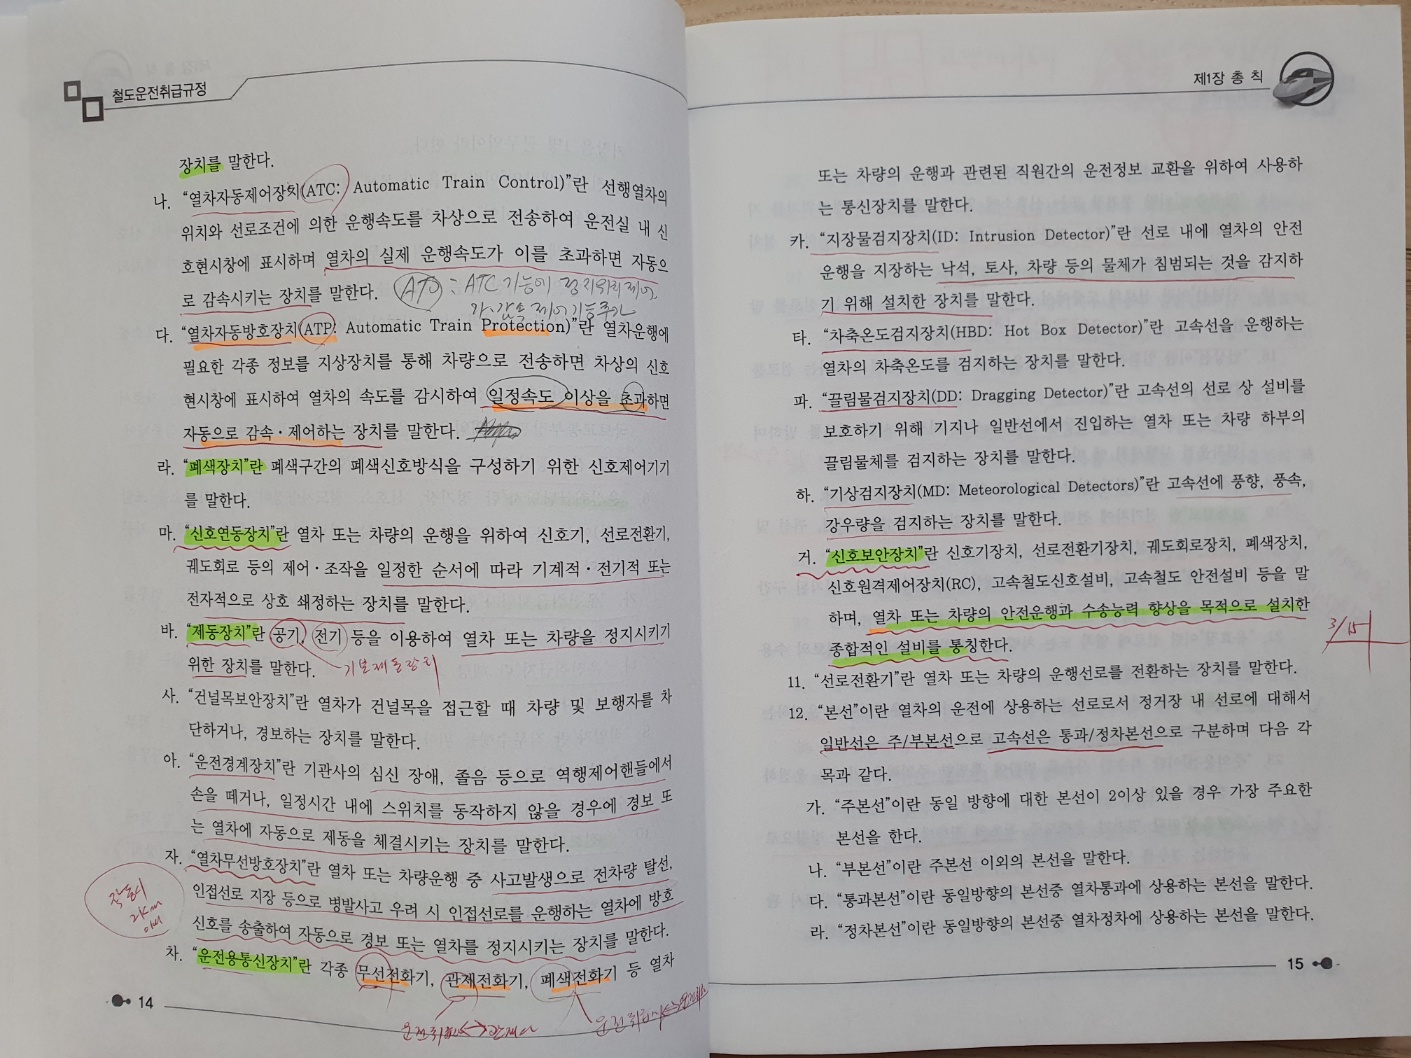 철도운전취급규정
장치를 말한다.
나. “열차자동제어장치(ATC: Automatic Train Control)”란 선행열차의
위치와 선로조건에 의한 운행속도를 차상으로 전송하여 운전실 내 신
호현시창에 표시하며 열차의 실제 운행속도가 이를 초과하면 자동으
로 감속시키는 장치를 말한다.
ATO : ATC 기능에 정지위치제어,
가·감속 제어기능추가
다. “열차자동방호장치(ATP: Automatic Train Protection)”란 열차운행에
필요한 각종 정보를 지상장치를 통해 차량으로 전송하면 차상의 신호
현시창에 표시하여 열차의 속도를 감시하여 일정속도 이상을 초과하면
자동으로 감속·제어하는 장치를 말한다.
라. “폐색장치”란 폐색구간의 폐색신호방식을 구성하기 위한 신호제어기기
를 말한다.
마. “신호연동장치”란 열차 또는 차량의 운행을 위하여 신호기, 선로전환기,
궤도회로 등의 제어·조작을 일정한 순서에 따라 기계적·전기적 또는
전자적으로 상호 쇄정하는 장치를 말한다.
바. “제동장치”란 공기, 전기 등을 이용하여 열차 또는 차량을 정지시키기
위한 장치를 말한다.
기본제동장치
사. “건널목보안장치”란 열차가 건널목을 접근할 때 차량 및 보행자를 차
단하거나, 경보하는 장치를 말한다.
아. “운전경계장치”란 기관사의 심신 장애, 졸음 등으로 역행제어핸들에서
손을 떼거나, 일정시간 내에 스위치를 동작하지 않을 경우에 경보 또
는 열차에 자동으로 제동을 체결시키는 장치를 말한다.
자. “열차무선방호장치”란 열차 또는 차량운행 중 사고발생으로 전차량 탈선,
인접선로 지장 등으로 병발사고 우려 시 인접선로를 운행하는 열차에 방호
신호를 송출하여 자동으로 경보 또는 열차를 정지시키는 장치를 말한다.
2km
차. “운전용통신장치”란 각종 무선전화기, 관제전화기, 폐색전화기 등 열차
14
제1장 총 칙
또는 차량의 운행과 관련된 직원간의 운전정보 교환을 위하여 사용하
는 통신장치를 말한다.
카. “지장물검지장치(ID: Intrusion Detector)”란 선로 내에 열차의 안전
운행을 지장하는 낙석, 토사, 차량 등의 물체가 침범되는 것을 감지하
기 위해 설치한 장치를 말한다.
타. “차축온도검지장치(HBD: Hot Box Detector)”란 고속선을 운행하는
열차의 차축온도를 검지하는 장치를 말한다.
파. “끌림물검지장치(DD: Dragging Detector)”란 고속선의 선로 상 설비를
보호하기 위해 기지나 일반선에서 진입하는 열차 또는 차량 하부의
끌림물체를 검지하는 장치를 말한다.
하. “기상검지장치(MD: Meteorological Detectors)”란 고속선에 풍향, 풍속,
강우량을 검지하는 장치를 말한다.
거. “신호보안장치”란 신호기장치, 선로전환기장치, 궤도회로장치, 폐색장치,
신호원격제어장치(RC), 고속철도신호설비, 고속철도 안전설비 등을 말
하며, 열차 또는 차량의 안전운행과 수송능력 향상을 목적으로 설치한
종합적인 설비를 통칭한다.
3/15
11. “선로전환기”란 열차 또는 차량의 운행선로를 전환하는 장치를 말한다.
12. “본선”이란 열차의 운전에 상용하는 선로로서 정거장 내 선로에 대해서
일반선은 주/부본선으로 고속선은 통과/정차본선으로 구분하며 다음 각
목과 같다.
가. “주본선”이란 동일 방향에 대한 본선이 2이상 있을 경우 가장 주요한
본선을 한다.
나. “부본선”이란 주본선 이외의 본선을 말한다.
다. “통과본선”이란 동일방향의 본선중 열차통과에 상용하는 본선을 말한다.
라. “정차본선”이란 동일방향의 본선중 열차정차에 상용하는 본선을 말한다.
15